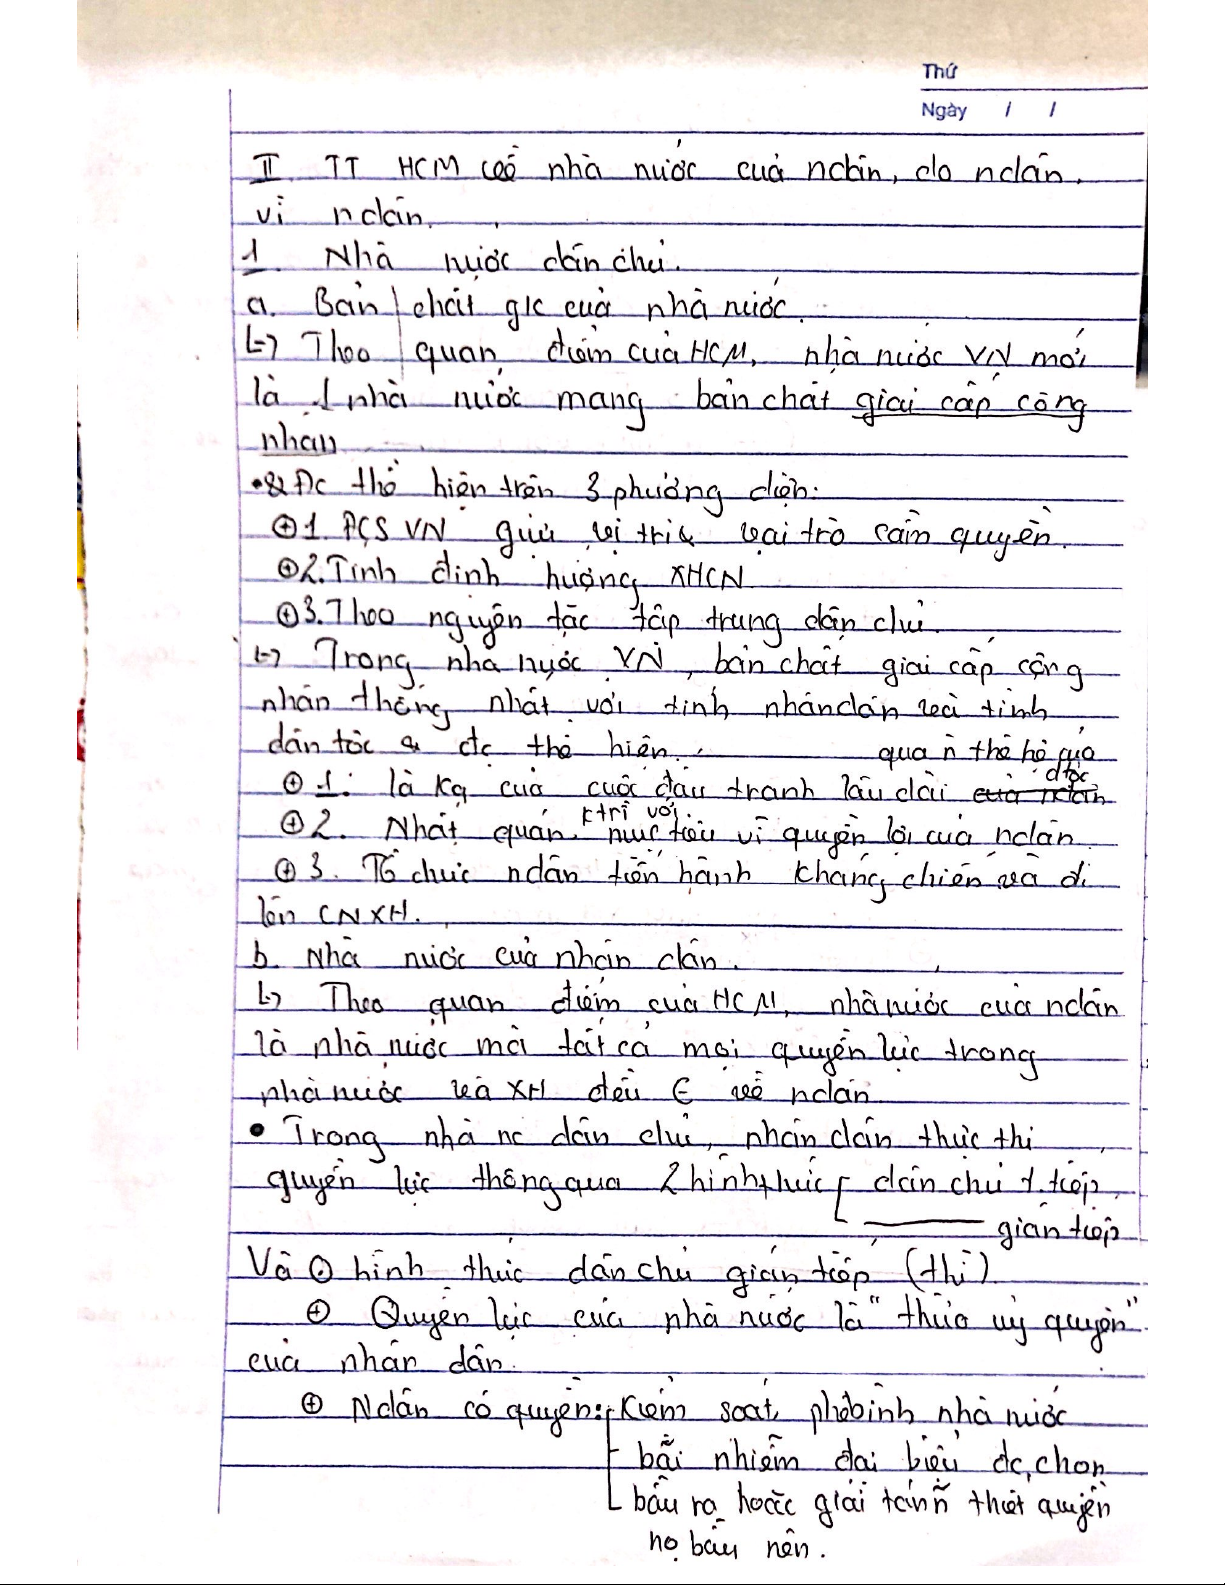 Thứ
Ngày / /
II. TT HCM về nhà nước của ndân, do ndân,
vì ndân.
1. Nhà nước dân chủ.
a. Bản chất g/c của nhà nước.
↳ Theo quan điểm của HCM, nhà nước VN mới
là 1 nhà nước mang bản chất giai cấp công
nhân
• & Đc thể hiện trên 3 phương diện:
⊕ 1. ĐCS VN giữ vị trí & vai trò cầm quyền.
⊕ 2. Tính định hướng XHCN
⊕ 3. Theo nguyên tắc tập trung dân chủ.
↳ Trong nhà nước VN, bản chất giai cấp công
nhân thống nhất với tính nhân dân và tính
dân tộc & đc thể hiện:
qua ñ thế hệ của
⊕ 1: là kq của cuộc đấu tranh lâu dài của ndân
dtộc
ktrì với
⊕ 2. Nhất quán mục tiêu vì quyền lợi của ndân
⊕ 3. Tổ chức ndân tiến hành kháng chiến và đi
lên CNXH.
b. Nhà nước của nhân dân.
↳ Theo quan điểm của HCM, nhà nước của ndân
là nhà nước mà tất cả mọi quyền lực trong
nhà nước và XH đều ∈ về ndân
• Trong nhà nc dân chủ, nhân dân thực thi
quyền lực thông qua 2 hình thức dân chủ t.tiếp
gián tiếp
Và ⊙ hình thức dân chủ gián tiếp (thì)
⊕ Quyền lực của nhà nước là "thừa uỷ quyền"
của nhân dân.
⊕ Ndân có quyền: Kiểm soát, phê bình nhà nước
bãi nhiễm đại biểu đc chọn
bầu ra hoặc giải tán ñ thiết quyền
họ bầu nên.